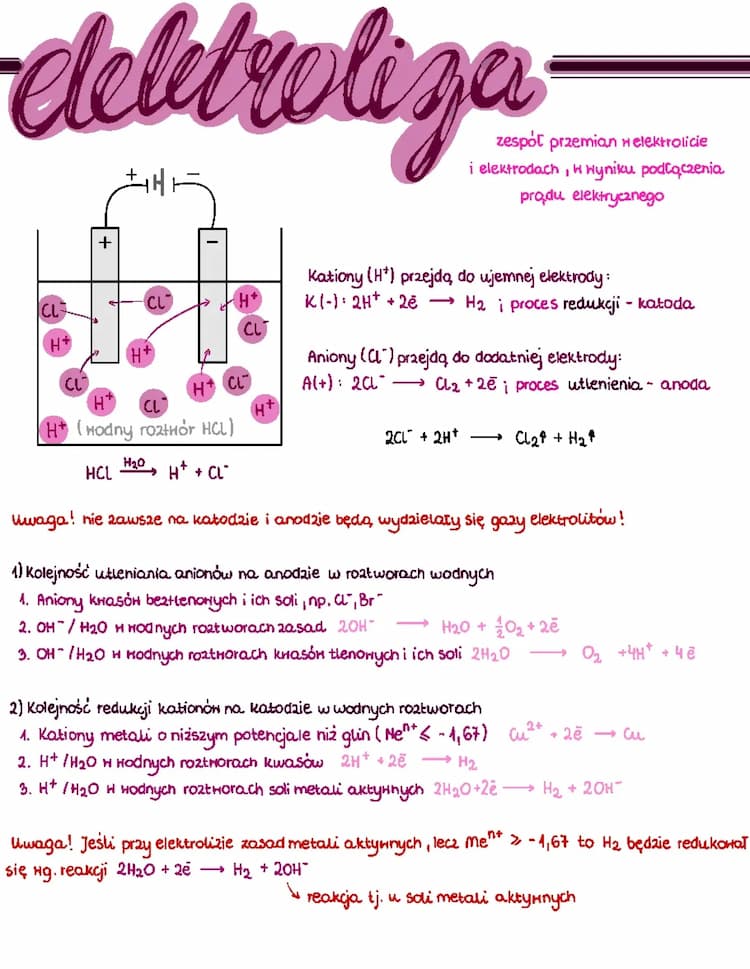 elektroliza
zespół przemian w elektrolicie
i elektrodach, w wyniku podłączenia
prądu elektrycznego
+ −
+ −
Cl⁻ Cl⁻ H⁺
H⁺ H⁺ Cl⁻
Cl⁻ H⁺ Cl⁻ H⁺ Cl⁻ H⁺
H⁺ (wodny roztwór HCl)
HCl H₂O → H⁺ + Cl⁻
Kationy (H⁺) przejdą do ujemnej elektrody:
K(-): 2H⁺ + 2ē → H₂ ; proces redukcji - katoda
Aniony (Cl⁻) przejdą do dodatniej elektrody:
A(+): 2Cl⁻ → Cl₂ + 2ē ; proces utlenienia - anoda
2Cl⁻ + 2H⁺ → Cl₂↑ + H₂↑
Uwaga! nie zawsze na katodzie i anodzie będą wydzielały się gazy elektrolitów!
1) Kolejność utleniania anionów na anodzie w roztworach wodnych
1. Aniony kwasów beztlenowych i ich soli, np. Cl⁻, Br⁻
2. OH⁻/H₂O w wodnych roztworach zasad 2OH⁻ → H₂O + ½O₂ + 2ē
3. OH⁻/H₂O w wodnych roztworach kwasów tlenowych i ich soli 2H₂O → O₂ +4H⁺ + 4ē
2) Kolejność redukcji kationów na katodzie w wodnych roztworach
1. Kationy metali o niższym potencjale niż glin (Meⁿ⁺ ≤ -1,67) Cu²⁺ + 2ē → Cu
2. H⁺/H₂O w wodnych roztworach kwasów 2H⁺ + 2ē → H₂
3. H⁺/H₂O w wodnych roztworach soli metali aktywnych 2H₂O+2ē → H₂ + 2OH⁻
Uwaga! Jeśli przy elektrolizie zasad metali aktywnych, lecz Meⁿ⁺ ≥ -1,67 to H₂ będzie redukował
się wg. reakcji 2H₂O + 2ē → H₂ + 2OH⁻
↘ reakcja tj. u soli metali aktywnych